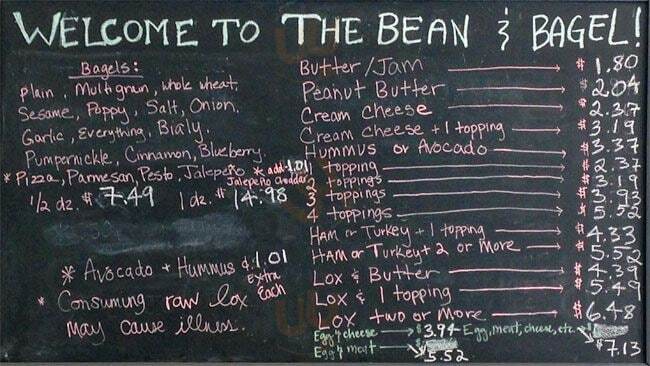 WELCOME TO THE BEAN & BAGEL!
Bagels:
Plain, Multigrain, whole wheat,
Sesame, Poppy, Salt, Onion,
Garlic, Everything, Bialy,
Pumpernickle, Cinnamon, Blueberry
* Pizza, Parmesan, Pesto, Jalepeño * add 1.01
Jalepeño Cheddar
1/2 dz. $7.49 1 dz. $14.98
* Avocado + Hummus $1.01
Extra
Each
* Consuming raw lox
may cause illness.
Butter/Jam $1.80
Peanut Butter $2.04
Cream cheese $2.37
Cream cheese + 1 topping $3.19
Hummus or Avocado $3.37
1 topping $2.37
2 toppings $3.19
3 toppings $3.93
4 toppings $5.52
Ham or Turkey + 1 topping $4.33
Ham or Turkey + 2 or more $5.52
Lox & Butter $4.39
Lox & 1 topping $5.49
Lox two or more $6.48
Egg & cheese $3.94 Egg, meat, cheese, etc.
Egg & meat $5.52 $7.13